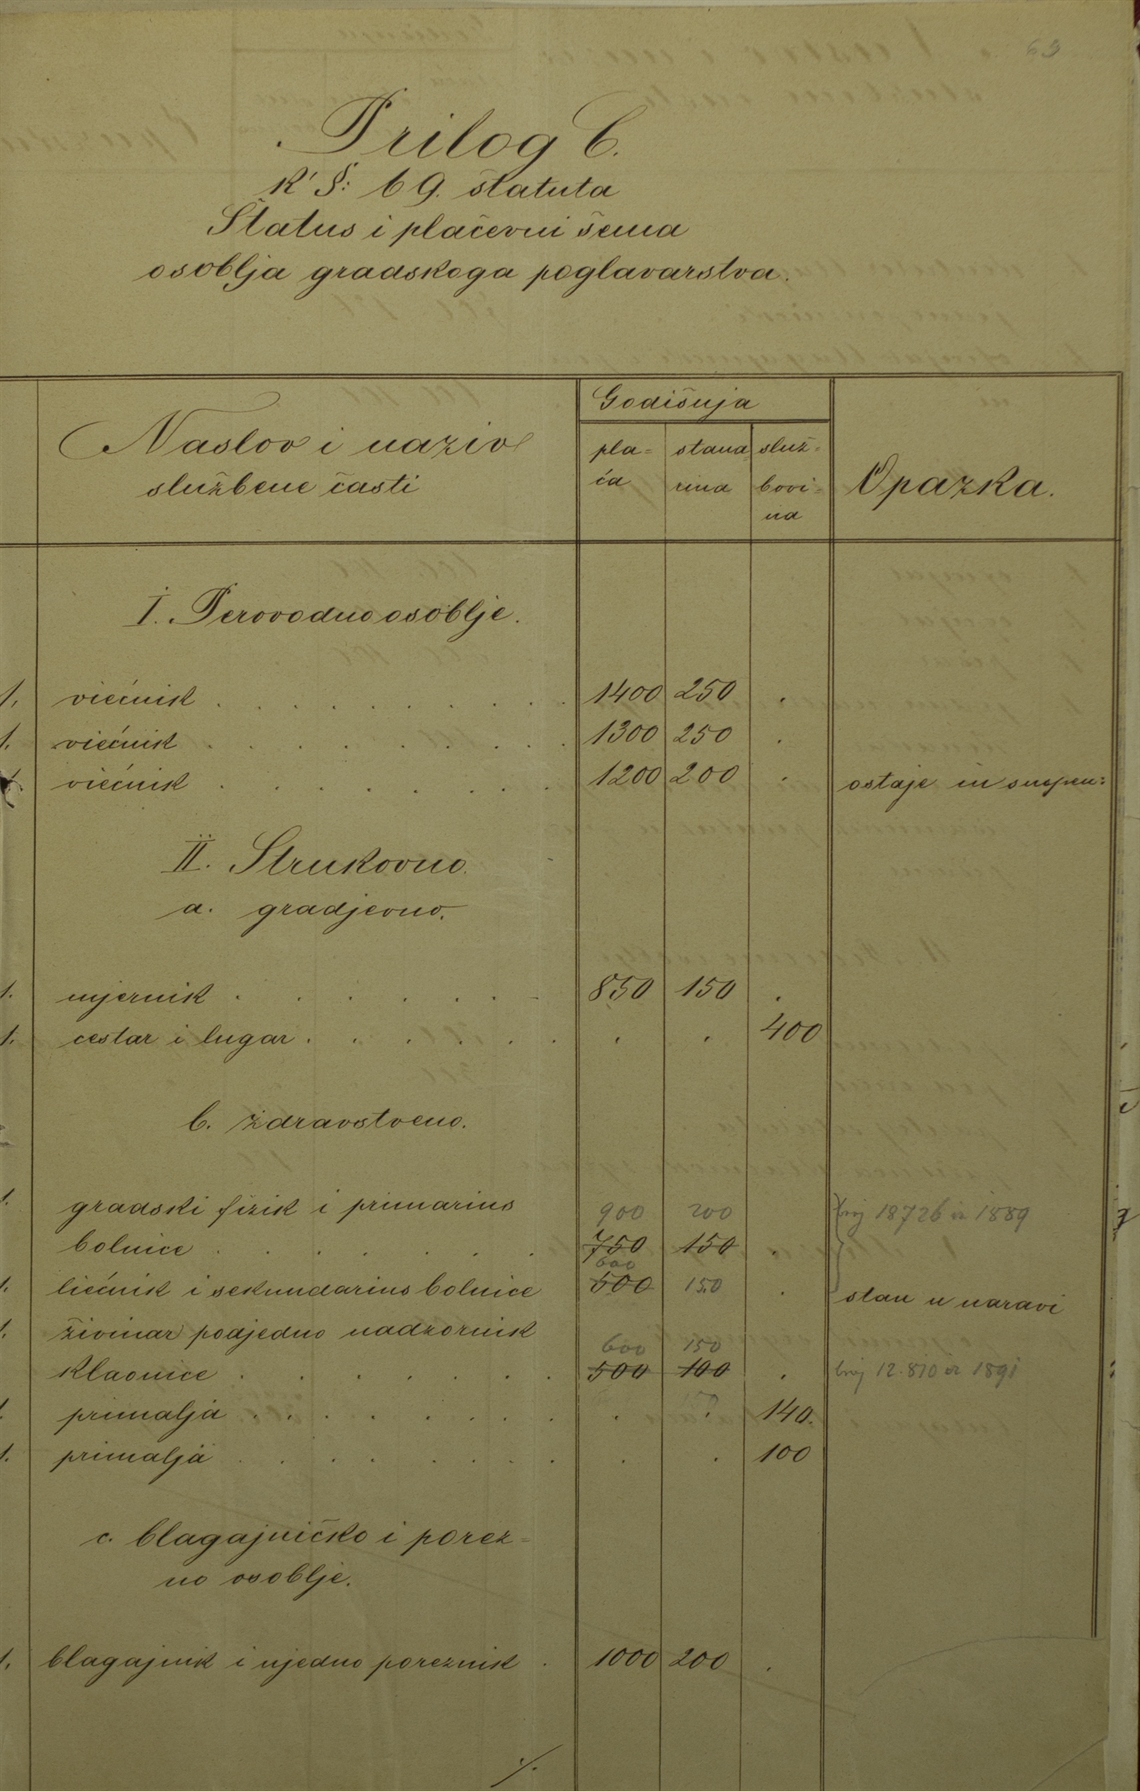 69
Prilog C.
k' §: 69. štatuta
Štatus i plaćevni šema
osoblja gradskoga poglavarstva.
Naslov i naziv
službene časti
Godišnja
pla=
ća
stana
rina
služ=
bovi=
na
Opazka.
I. Perovodno osoblje.
1. viećnik . . . . . . . . . 1400 250 .
1. viećnik . . . . . . . . . 1300 250 .
viećnik . . . . . . . . 1200 200 . ostaje in suspen:
II. Strukovno.
a. gradjevno.
1. mjernik . . . . . . . 850 150 .
1. cestar i lugar . . . . . . . . 400
b. zdravstveno.
1. gradski fizik i primarius 900 200 broj 18726 ex 1889
bolnice . . . . . . . 750 150 .
600
1. liečnik i sekundarius bolnice 500 150 . stan u naravi
1. živinar podjedno nadzornik 600 150
klaonice . . . . . . . 500 100 . broj 12.810 ex 1891
1. primalja . . . . . . . . . 140.
1. primalja . . . . . . . . . 100
c. blagajničko i porez=
no osoblje.
1. blagajnik i ujedno poreznik . 1000 200 .
./.